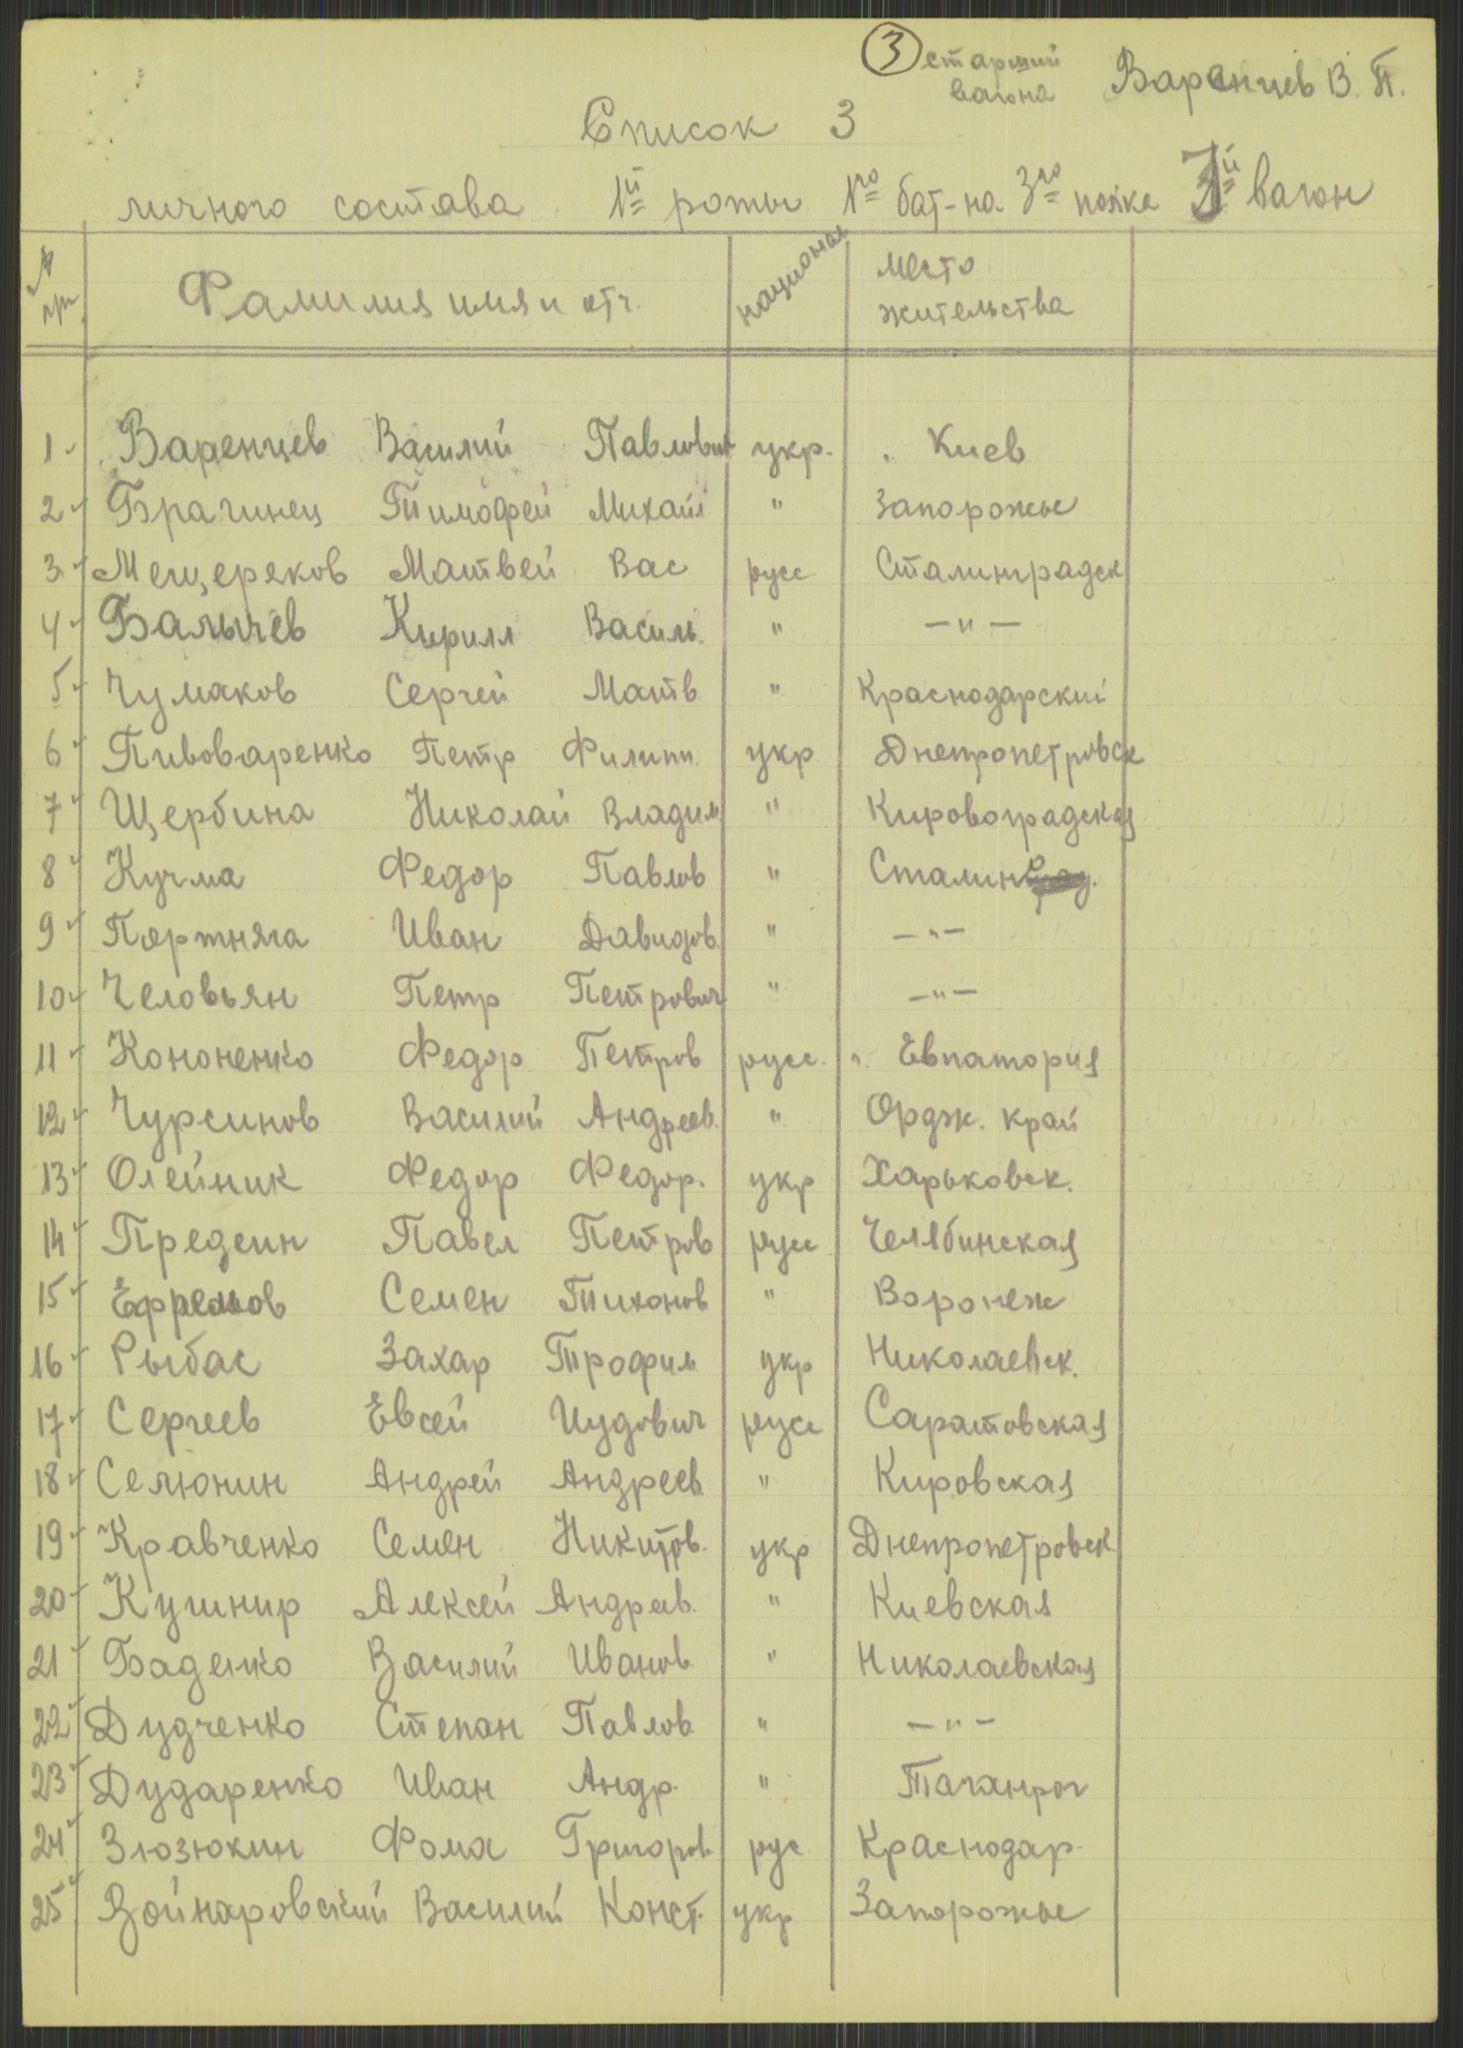 ③ старший
вагона Варенцев В. П.
Список 3
личного состава 1й роты 1го бат-на 3го полка 3й вагон
№ пп Фамилия имя и отч. национал место жительства
1 Варенцев Василий Павлович укр. Киев
2 Брагинец Тимофей Михайл " Запорожье
3 Мещеряков Матвей Вас русс Сталинградск
4 Балычев Кирилл Василь. " — " —
5 Чумаков Сергей Матв " Краснодарский
6 Пивоваренко Петр Филипп. укр Днепропетровск
7 Щербина Николай Владим " Кировоградская
8 Кучма Федор Павлов " Сталин
9 Портняга Иван Давидов " — " —
10 Человьян Петр Петрович " — " —
11 Кононенко Федор Петров русс. Евпатория
12 Чурсинов Василий Андреев. " Ордж. край
13 Олейник Федор Федор. укр Харьковск.
14 Предеин Павел Петров русс Челябинская
15 Ефремов Семен Тихонов " Воронеж
16 Рыбас Захар Трофим укр Николаевск.
17 Сергеев Евсей Иудович русс Саратовская
18 Селюнин Андрей Андреев " Кировская
19 Кравченко Семен Никитов. укр Днепропетровск
20 Кушнир Алексей Андреев. " Киевская
21 Баденко Василий Иванов " Николаевская
22 Дудченко Степан Павлов " — " —
23 Дударенко Иван Андр. " Таганрог
24 Зюзюкин Фома Григоров. рус Краснодар.
25 Войнаровский Василий Конст. укр Запорожье